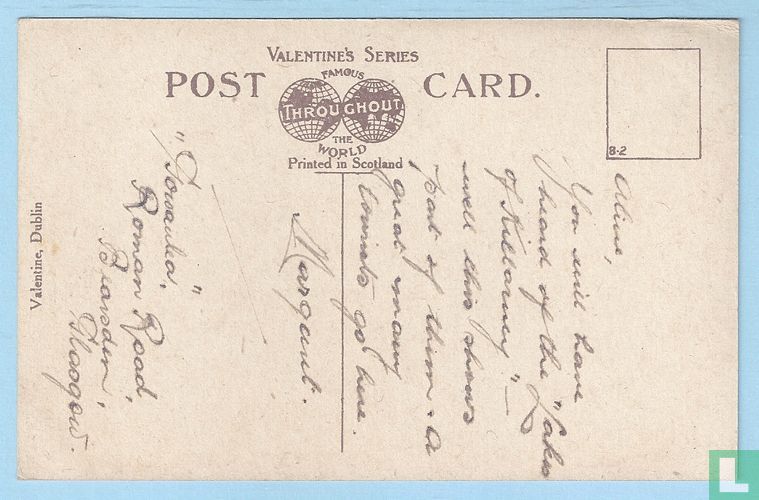 VALENTINE'S SERIES
POST CARD.
FAMOUS
THROUGHOUT
THE
WORLD
Printed in Scotland
8-2
Valentine, Dublin
You will have
heard of the "Lakes
of Killarney" —
well this shows
part of them. A
great many
tourists go here.
Margaret.
Roman Road,
Bearsden,
Glasgow.
L